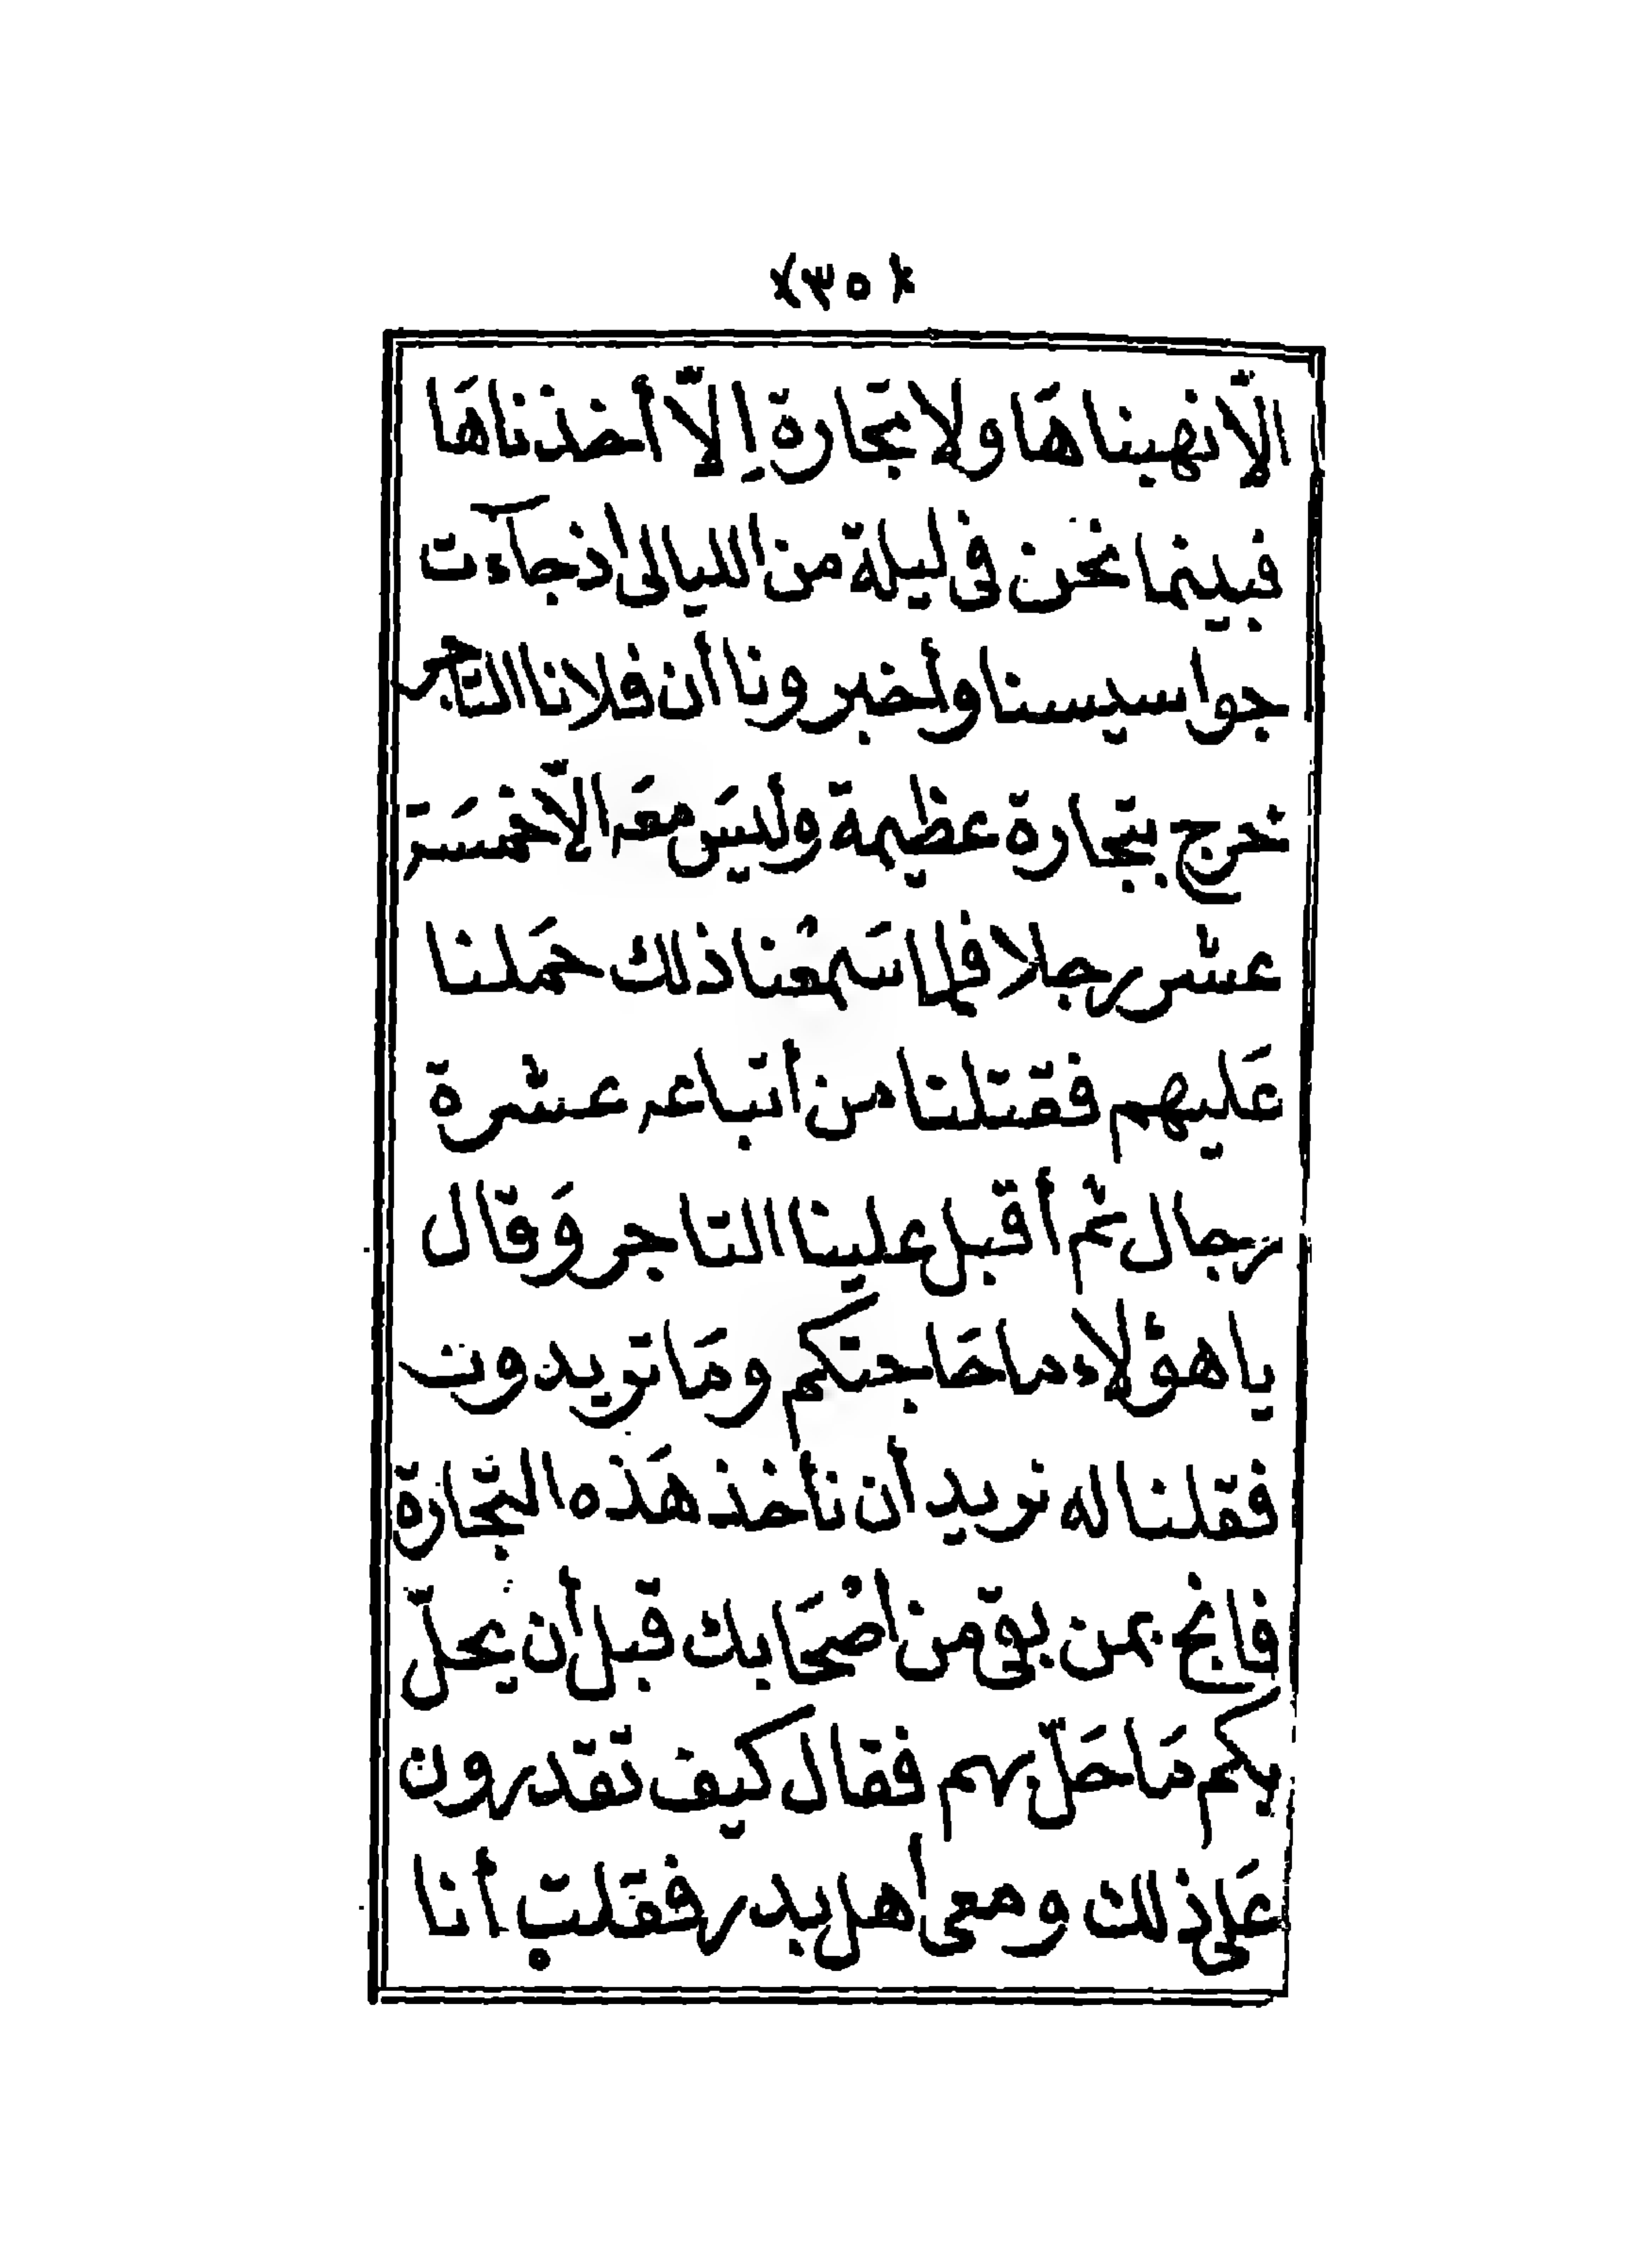 (٣٥)
الّا نهبناهَا ولا تجارة إلّا أخذناهَا
فبينما نحن فى ليلة من الليالى اذ جآءت
جواسيسنا وأخبرونا أن فلانا التاجر
خرج بتجارة عظيمة وليسَ معَه الّا خمسَة
عشر رجلا فلما سَمعْنا ذلك حمَلنا
عَليهم فقتلنا من أتباعه عشرة
رجال ثم أقبل علينا التاجر وَقال
يا هؤلاء ما حَاجتكم ومَا تريدون
فقلنا له نريد أن نأخذ هَذه التجارة
فانج بمن بقى من اصْحَابك قبل أن يحلّ
بكم مَا حَلّ بهم فقال كيف تقدرون
عَلى ذلك ومعى أهل بدر فقلت أنا